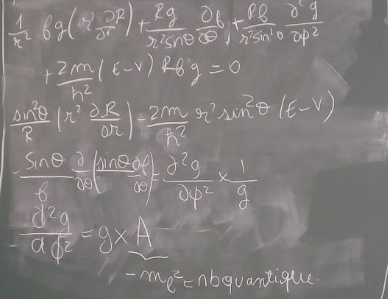 1/r² fg (r² ∂R/∂r) + Rg/r² sinθ ∂/∂θ ∂f + Rf/r² sin²θ ∂²g/∂φ²
+ 2m/ħ² (E-V) R f g = 0
sin²θ/R (r² ∂R/∂r) - 2m/ħ² r² sin²θ (E-V)
- sinθ/f ∂/∂θ (sinθ ∂f/∂θ) = ∂²g/∂φ² × 1/g
- d²g/dφ² = g × A
- mℓ² = nb quantique.